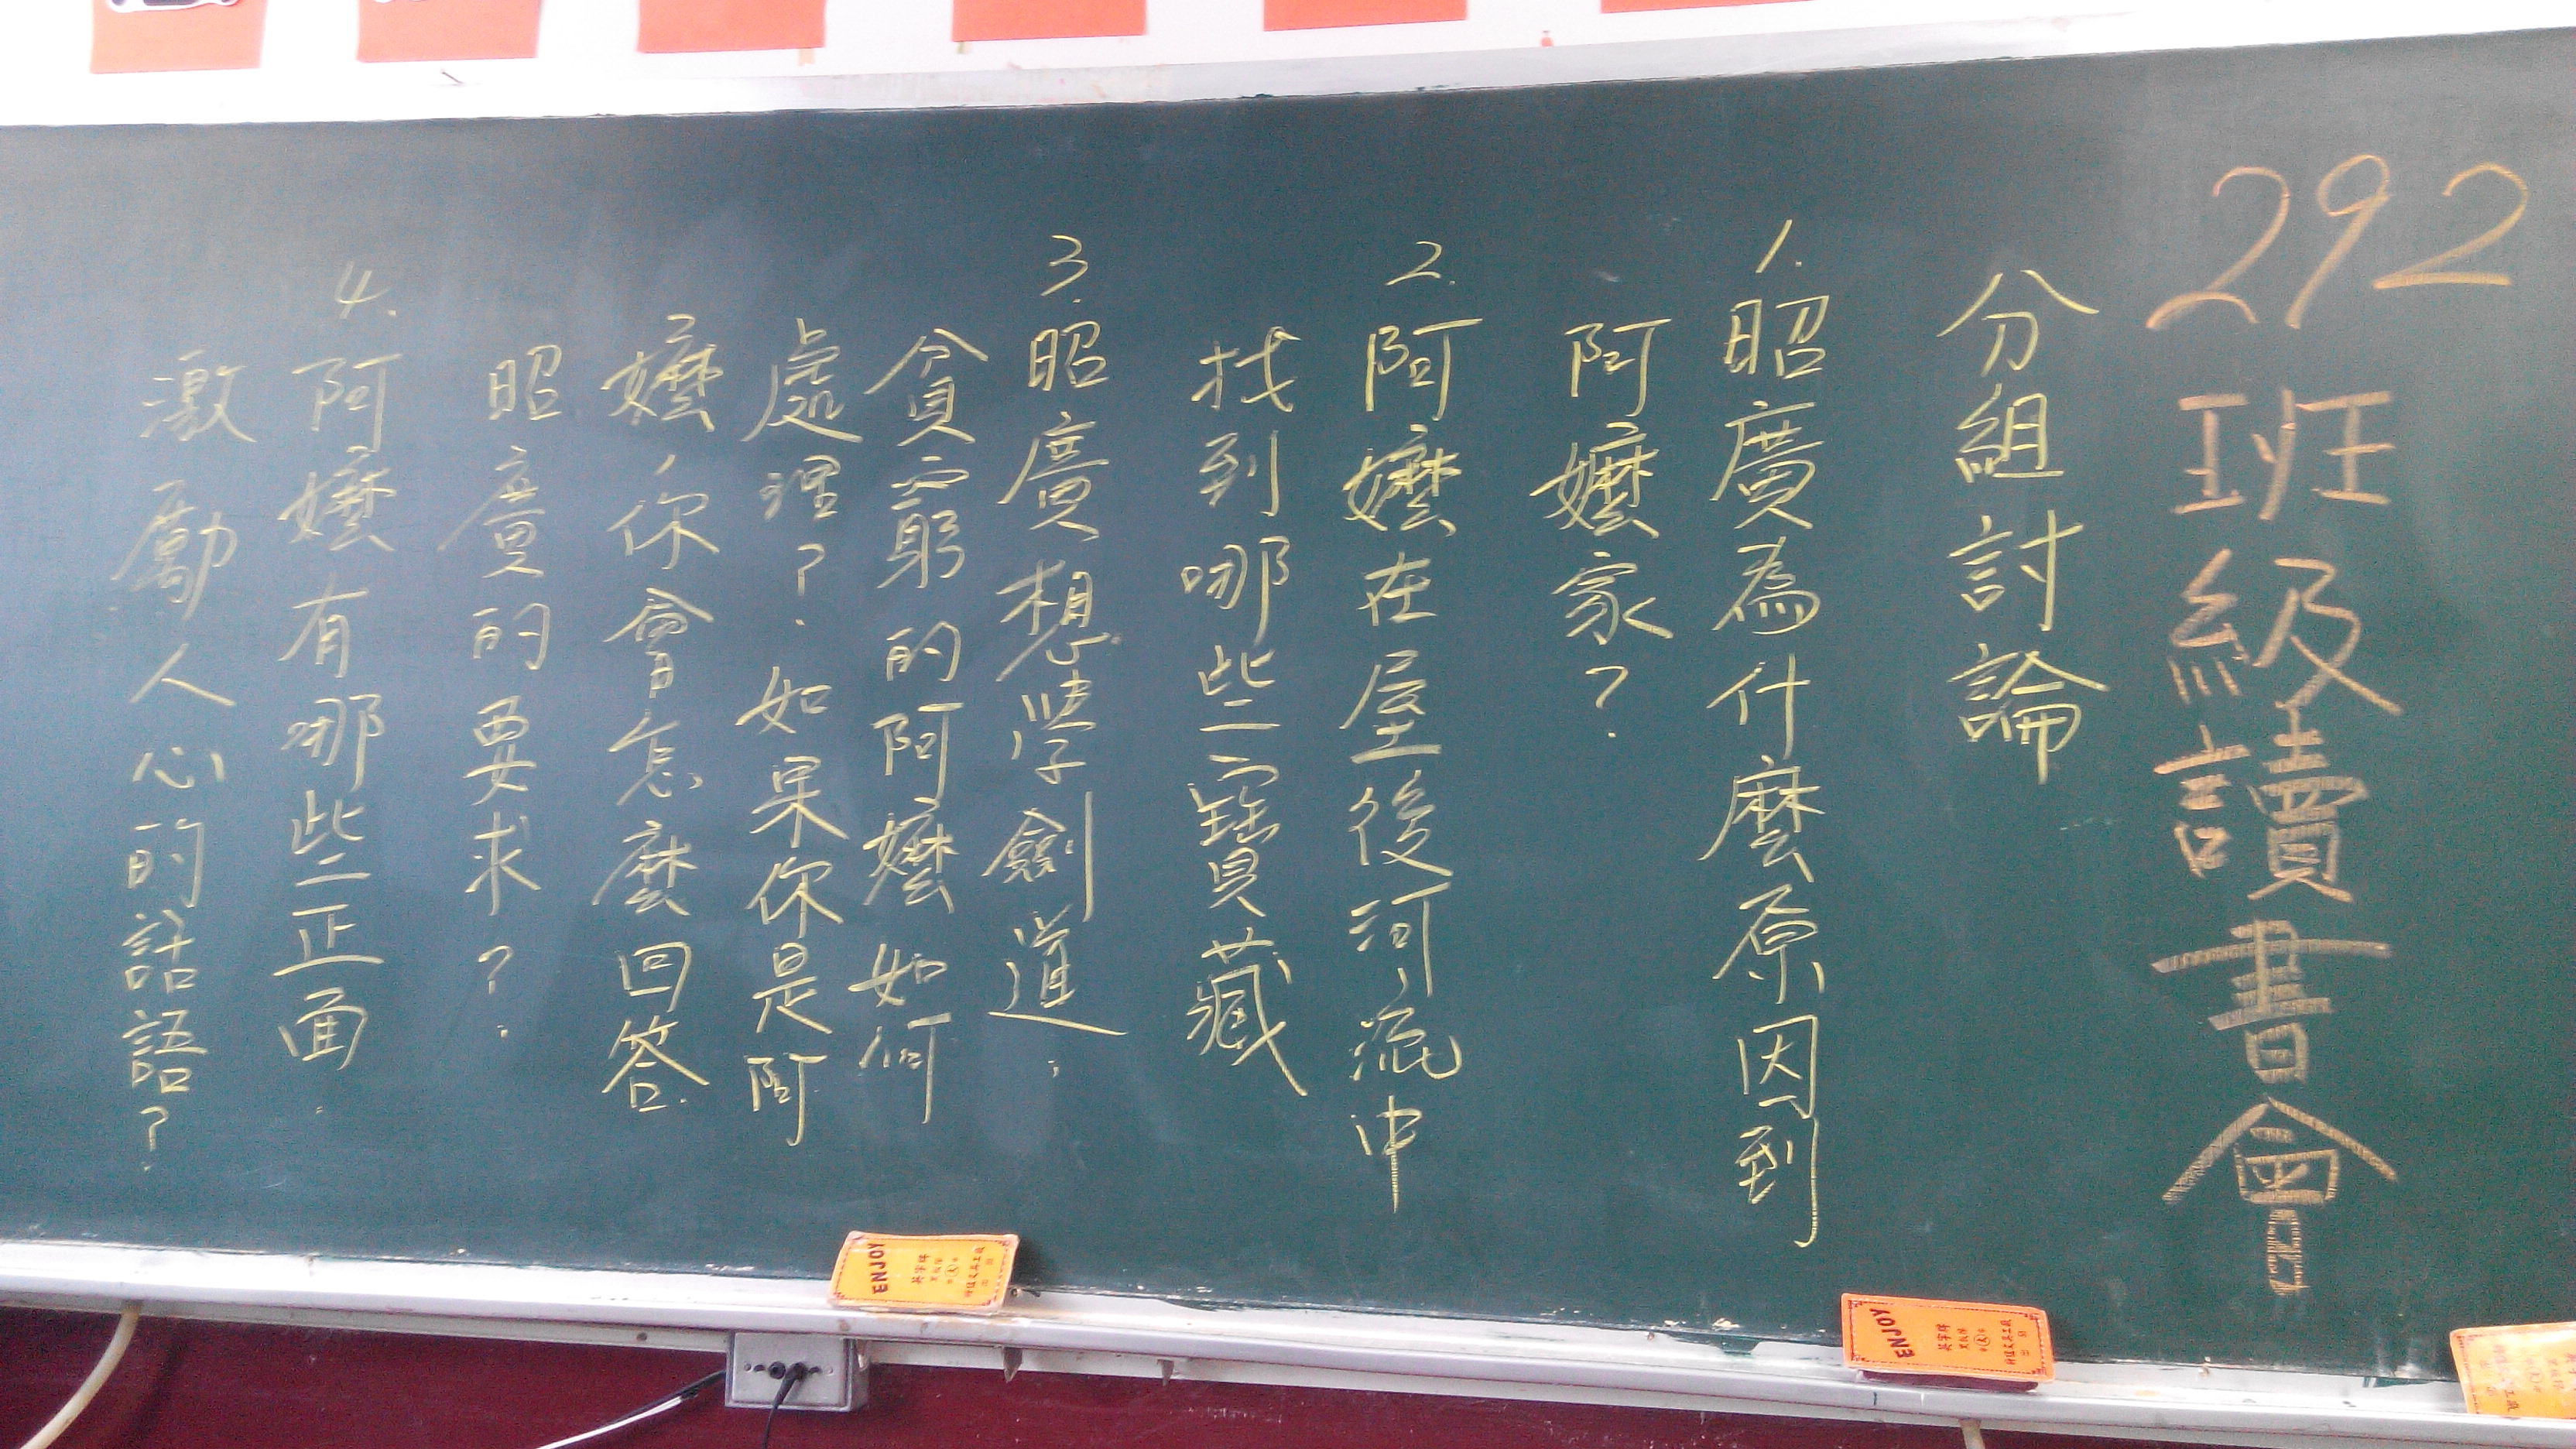 292班級讀書會
分組討論
1.昭廣為什麼原因到
阿嬤家？
2.阿嬤在屋後河流中
找到哪些寶藏
3.昭廣想學劍道，
貧窮的阿嬤如何
處理？如果你是阿
嬤，你會怎麼回答
昭廣的要求？
4.阿嬤有哪些正面
激勵人心的話語？
ENJOY
ENJOY